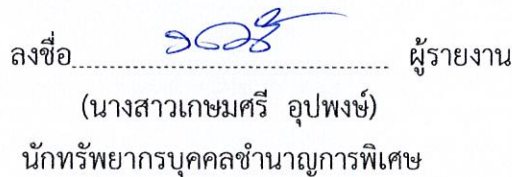 ลงชื่อ........................................................ ผู้รายงาน
(นางสาวเกษมศรี อุปพงษ์)
นักทรัพยากรบุคคลชำนาญการพิเศษ